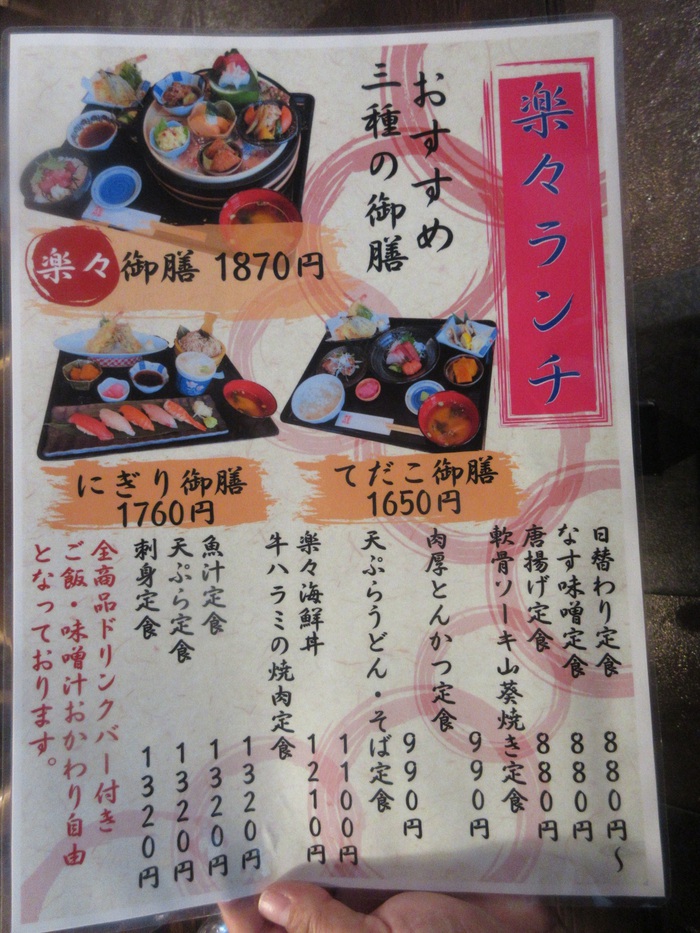 楽々ランチ
おすすめ
三種の御膳
楽々御膳 1870円
にぎり御膳
1760円
てだこ御膳
1650円
日替わり定食 880円～
なす味噌定食 880円
唐揚げ定食 880円
軟骨ソーキ山葵焼き定食 990円
肉厚とんかつ定食 990円
天ぷらうどん・そば定食 1100円
楽々海鮮丼 1210円
牛ハラミの焼肉定食 1320円
魚汁定食 1320円
天ぷら定食 1320円
刺身定食 1320円
全商品ドリンクバー付き
ご飯・味噌汁おかわり自由
となっております。